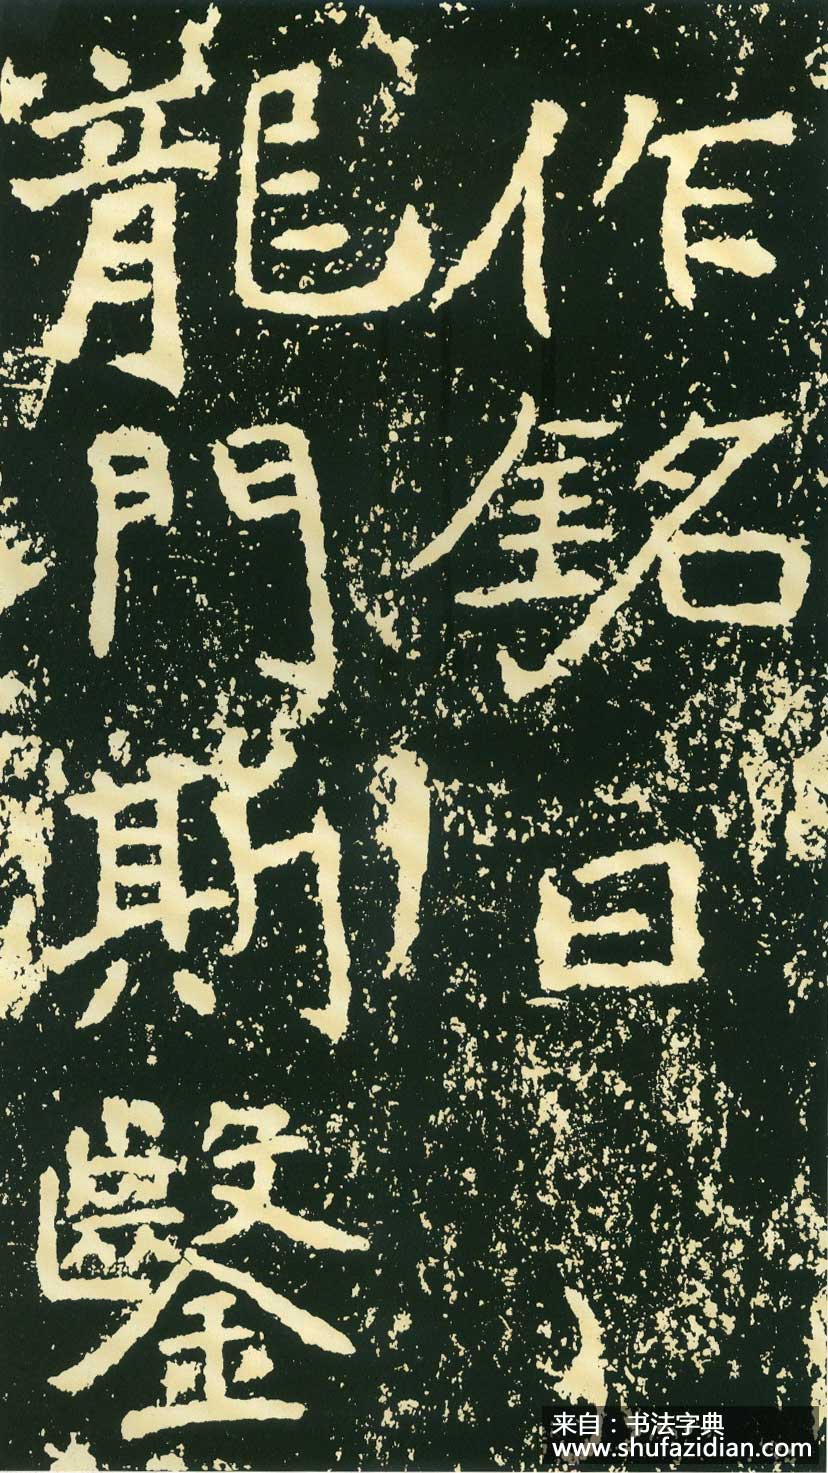 作銘曰
龍門斯鑿
来自：书法字典
www.shufazidian.com